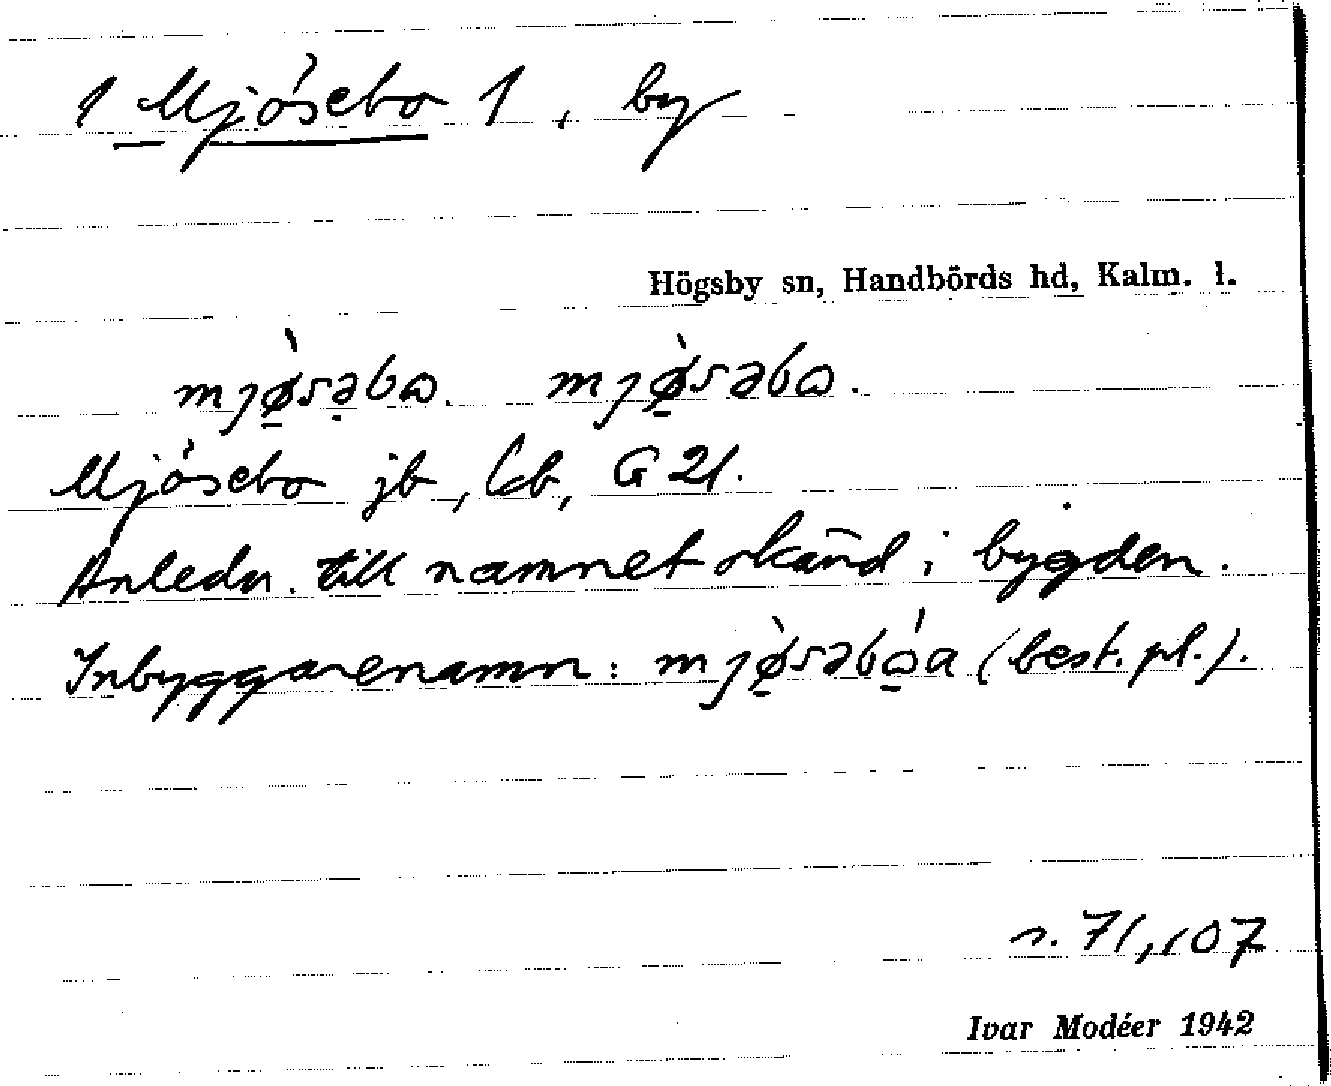 1 Mjösebo 1, by
Högsby sn, Handbörds hd, Kalm. l.
mjø̠̀sə̣bɷ. mjø̠̀səbɷ.
Mjösebo jb, kb, G 21.
Anledn. till namnet okänd i bygden.
Inbyggarenamn: mjø̠̀səbɷ̠́a (best. pl.).
s. 71, 107
Ivar Modéer 1942